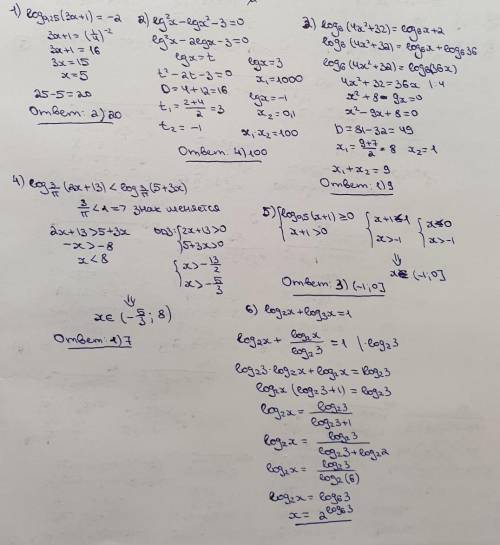 1) log₀,₂₅(3x+1) = -2
3x+1 = (1/4)⁻²
3x+1 = 16
3x = 15
x = 5
25-5 = 20
Ответ: 2) 20
2) lg²x - lgx² - 3 = 0
lg²x - 2lgx - 3 = 0
lgx = t
t² - 2t - 3 = 0
D = 4+12 = 16
t₁ = (2+4)/2 = 3
t₂ = -1
lgx = 3
x₁ = 1000
lgx = -1
x₂ = 0,1
x₁·x₂ = 100
Ответ: 4) 100
3) log₆(4x²+32) = log₆x + 2
log₆(4x²+32) = log₆x + log₆36
log₆(4x²+32) = log₆(36x)
4x²+32 = 36x | :4
x² + 8 - 9x = 0
x² - 9x + 8 = 0
D = 81-32 = 49
x₁ = (9+7)/2 = 8 x₂ = 1
x₁ + x₂ = 9
Ответ: 1) 9
4) log_{3/π}(2x+13) < log_{3/π}(5+3x)
3/π < 1 => знак меняется
2x+13 > 5+3x
-x > -8
x < 8
ОДЗ: { 2x+13 > 0
5+3x > 0
{ x > -13/2
x > -5/3
⇓
x ∈ (-5/3; 8)
Ответ: 1) 7
5) { log₀,₅(x+1) ≥ 0
x+1 > 0
{ x+1 ≤ 1
x > -1
{ x ≤ 0
x > -1
⇓
x ∈ (-1, 0]
Ответ: 3) (-1, 0]
6) log₂x + log₃x = 1
log₂x + log₂x/log₂3 = 1 | · log₂3
log₂3 · log₂x + log₂x = log₂3
log₂x (log₂3+1) = log₂3
log₂x = log₂3/(log₂3+1)
log₂x = log₂3/(log₂3+log₂2)
log₂x = log₂3/log₂(6)
log₂x = log₆3
x = 2^{log₆3}